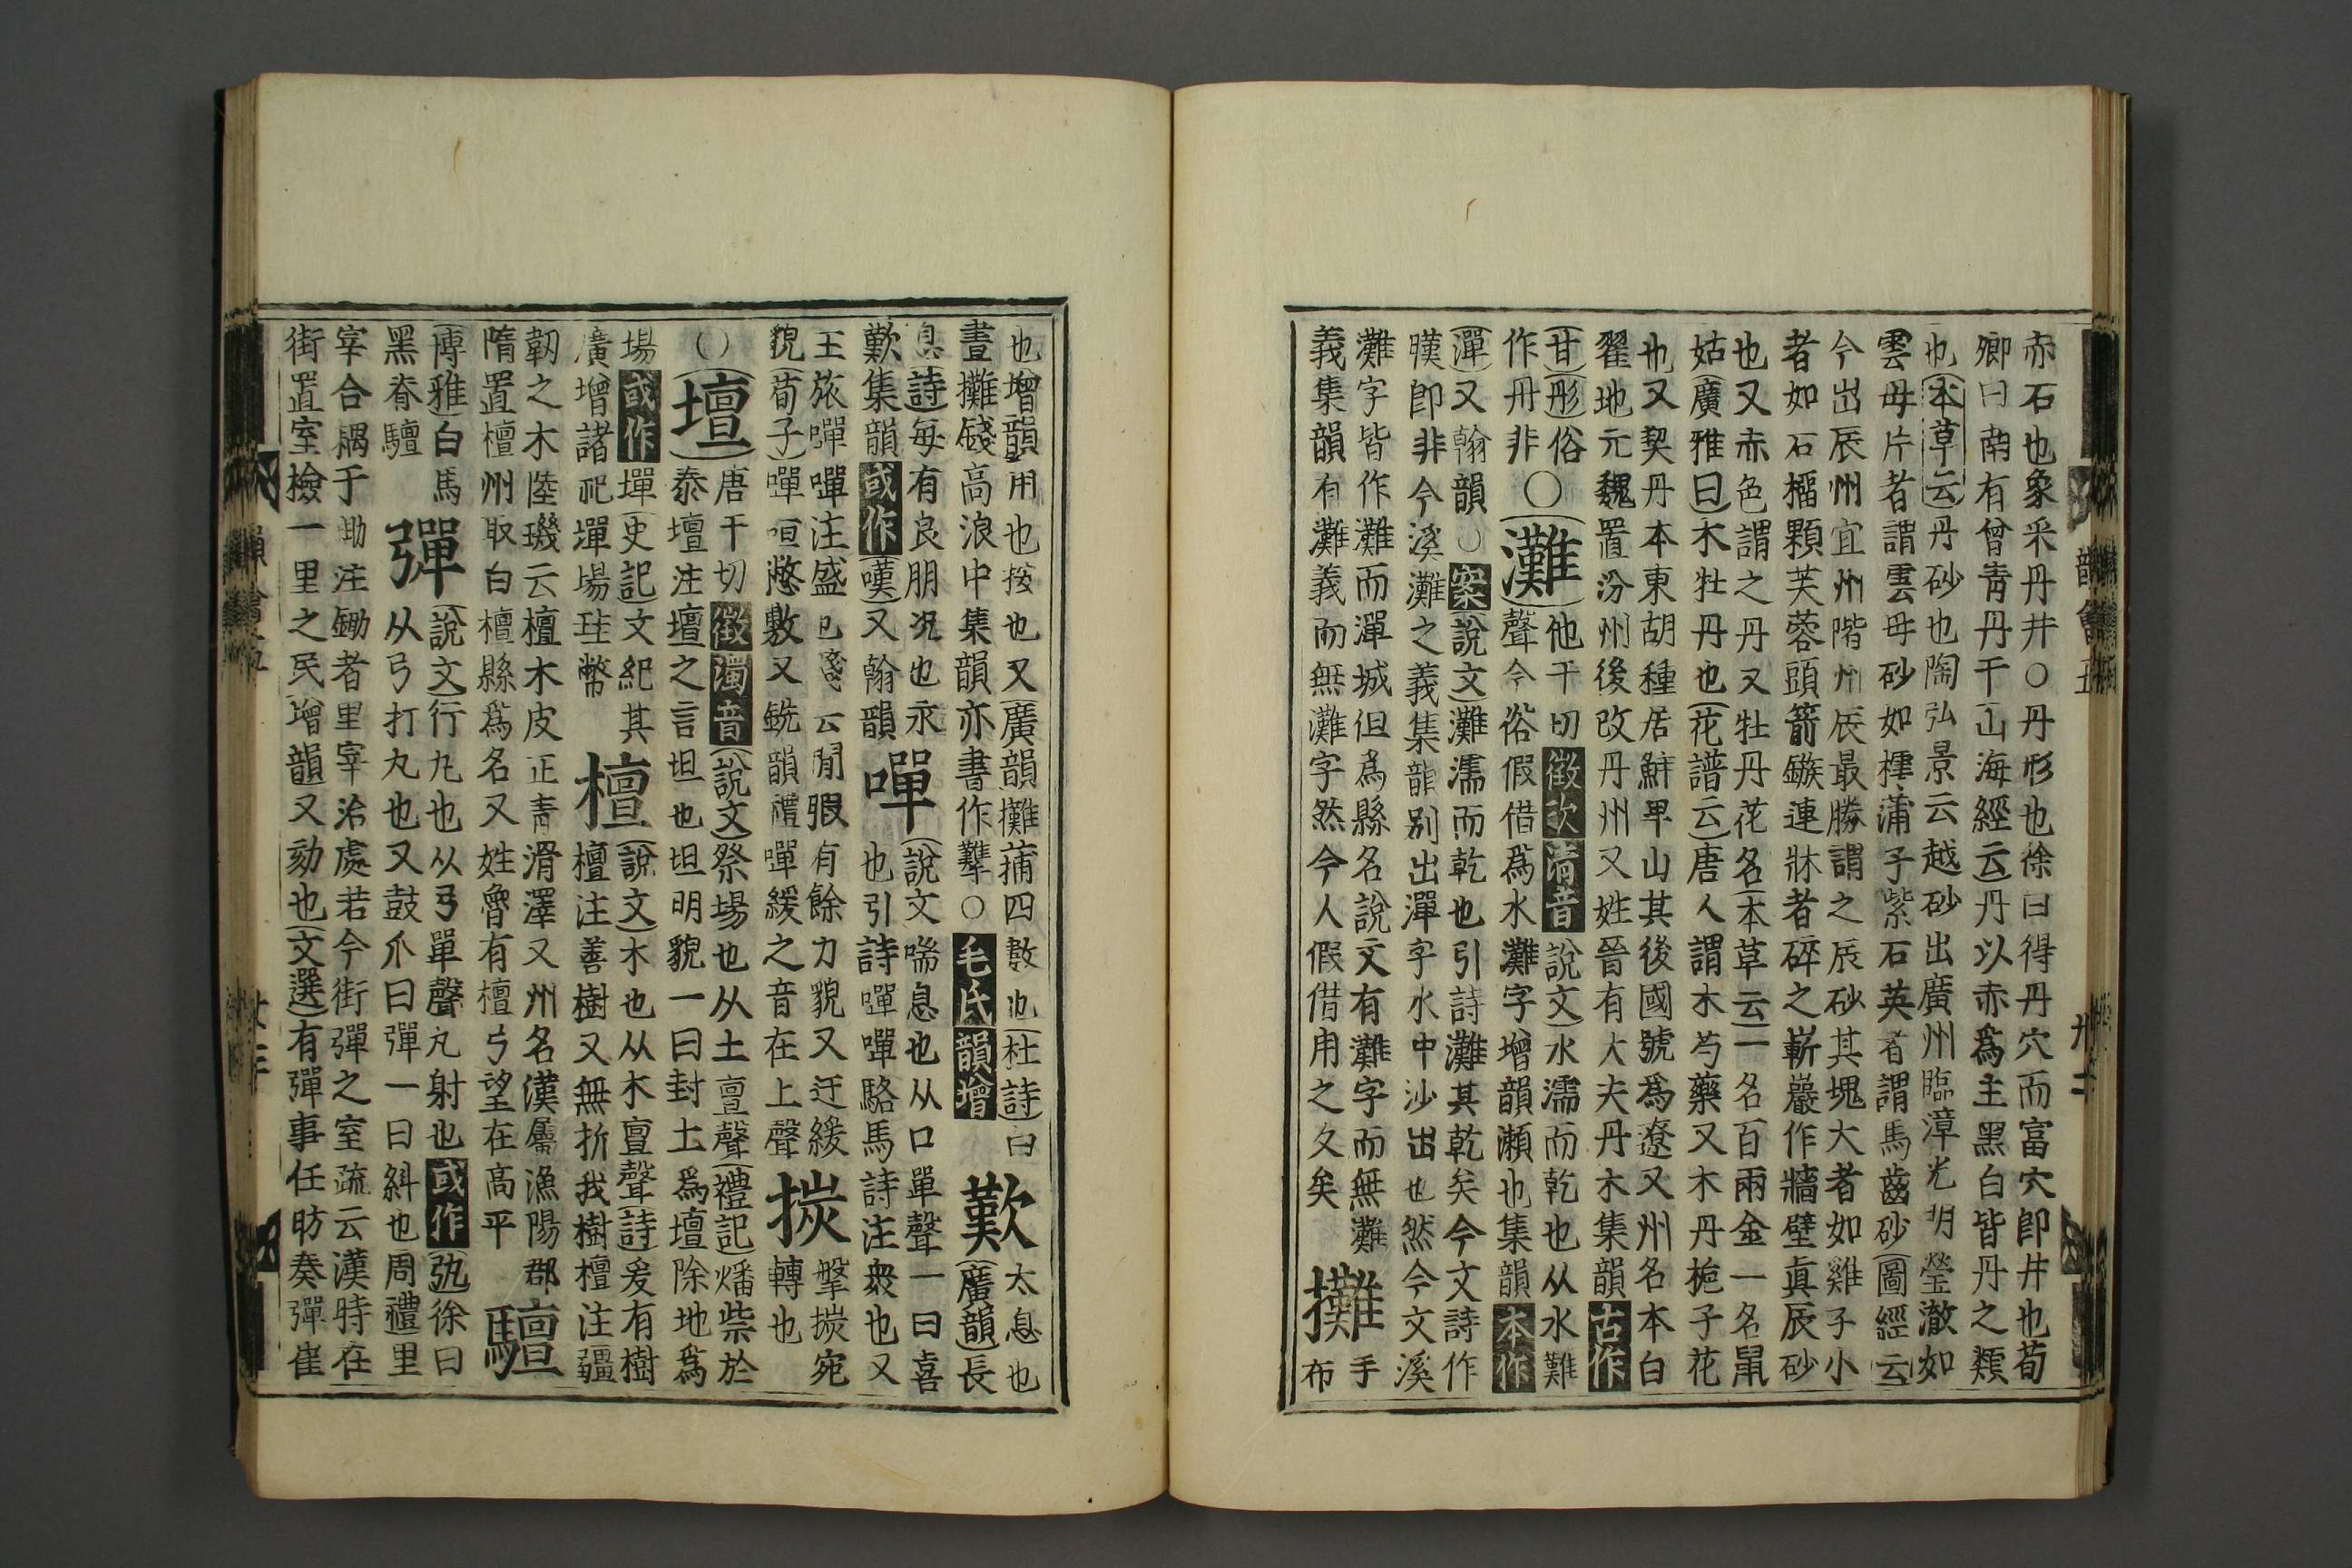 赤石也象采丹井○丹形也徐曰得丹穴而富穴卽井也荀
卿曰南有曾青丹干山海經云丹以赤爲主黑白皆丹之類
也本草云丹砂也陶弘景云越砂出廣州臨漳光明瑩澈如
雲母片者謂雲母砂如樗蒲子紫石英者謂馬齒砂圖經云
今出辰州宜州階州辰最勝謂之辰砂其塊大者如雞子小
者如石榴顆芙蓉頭箭鏃連牀者碎之嶄巖作牆壁真辰砂
也又赤色謂之丹又牡丹花名本草云一名百兩金一名鼠
姑廣雅曰木牡丹也花譜云唐人謂木芍藥又木丹梔子花
也又契丹本東胡種居鮮卑山其後國號爲遼又州名本白
翟地元魏置汾州後改丹州又姓晉有大夫丹木集韻古作
甘彤俗
作丹非○
灘
他干切徵次清音說文水濡而乾也从水難
聲今俗假借爲水灘字增韻瀨也集韻本作
潬又翰韻○案說文灘濡而乾也引詩灘其乾矣今文詩作
暵卽非今溪灘之義集韻別出潬字水中沙出也然今文溪
灘字皆作灘而潬城但爲縣名說文有灘字而無灘
義集韻有灘義而無灘字然今人假借用之久矣
攤
手
布
也增韻用也按也又廣韻攤蒱四數也杜詩白
晝攤錢高浪中集韻亦書作擹○毛氏韻增
歎
太息也
廣韻長
息詩每有良朋況也永
歎集韻或作嘆又翰韻
嘽
說文喘息也从口單聲一曰喜
也引詩嘽嘽駱馬詩注衆也又
王旅嘽嘽注盛也箋云閒暇有餘力貌又迂緩
貌荀子嘽咺憋敷又銑韻禮嘽緩之音在上聲
撚
揫撚宛
轉也
○
壇
唐干切徵濁音說文祭場也从土亶聲禮記燔柴於
泰壇注壇之言坦也坦明貌一曰封土爲壇除地爲
場或作墠史記文紀其
廣增諸祀墠場珪幣
檀
說文木也从木亶聲詩爰有樹
檀注善樹又無折我樹檀注彊
韌之木陸璣云檀木皮正青滑澤又州名漢屬漁陽郡
隋置檀州取白檀縣爲名又姓魯有檀弓望在高平
驙
博雅白馬
黑脊驙
彈
說文行丸也从弓單聲凡射也或作弞徐曰
从弓打丸也又鼓爪曰彈一曰糾也周禮里
宰合耦于耡注鋤者里宰治處若今街彈之室疏云漢時在
街置室檢一里之民增韻又劾也文選有彈事任昉奏彈崔